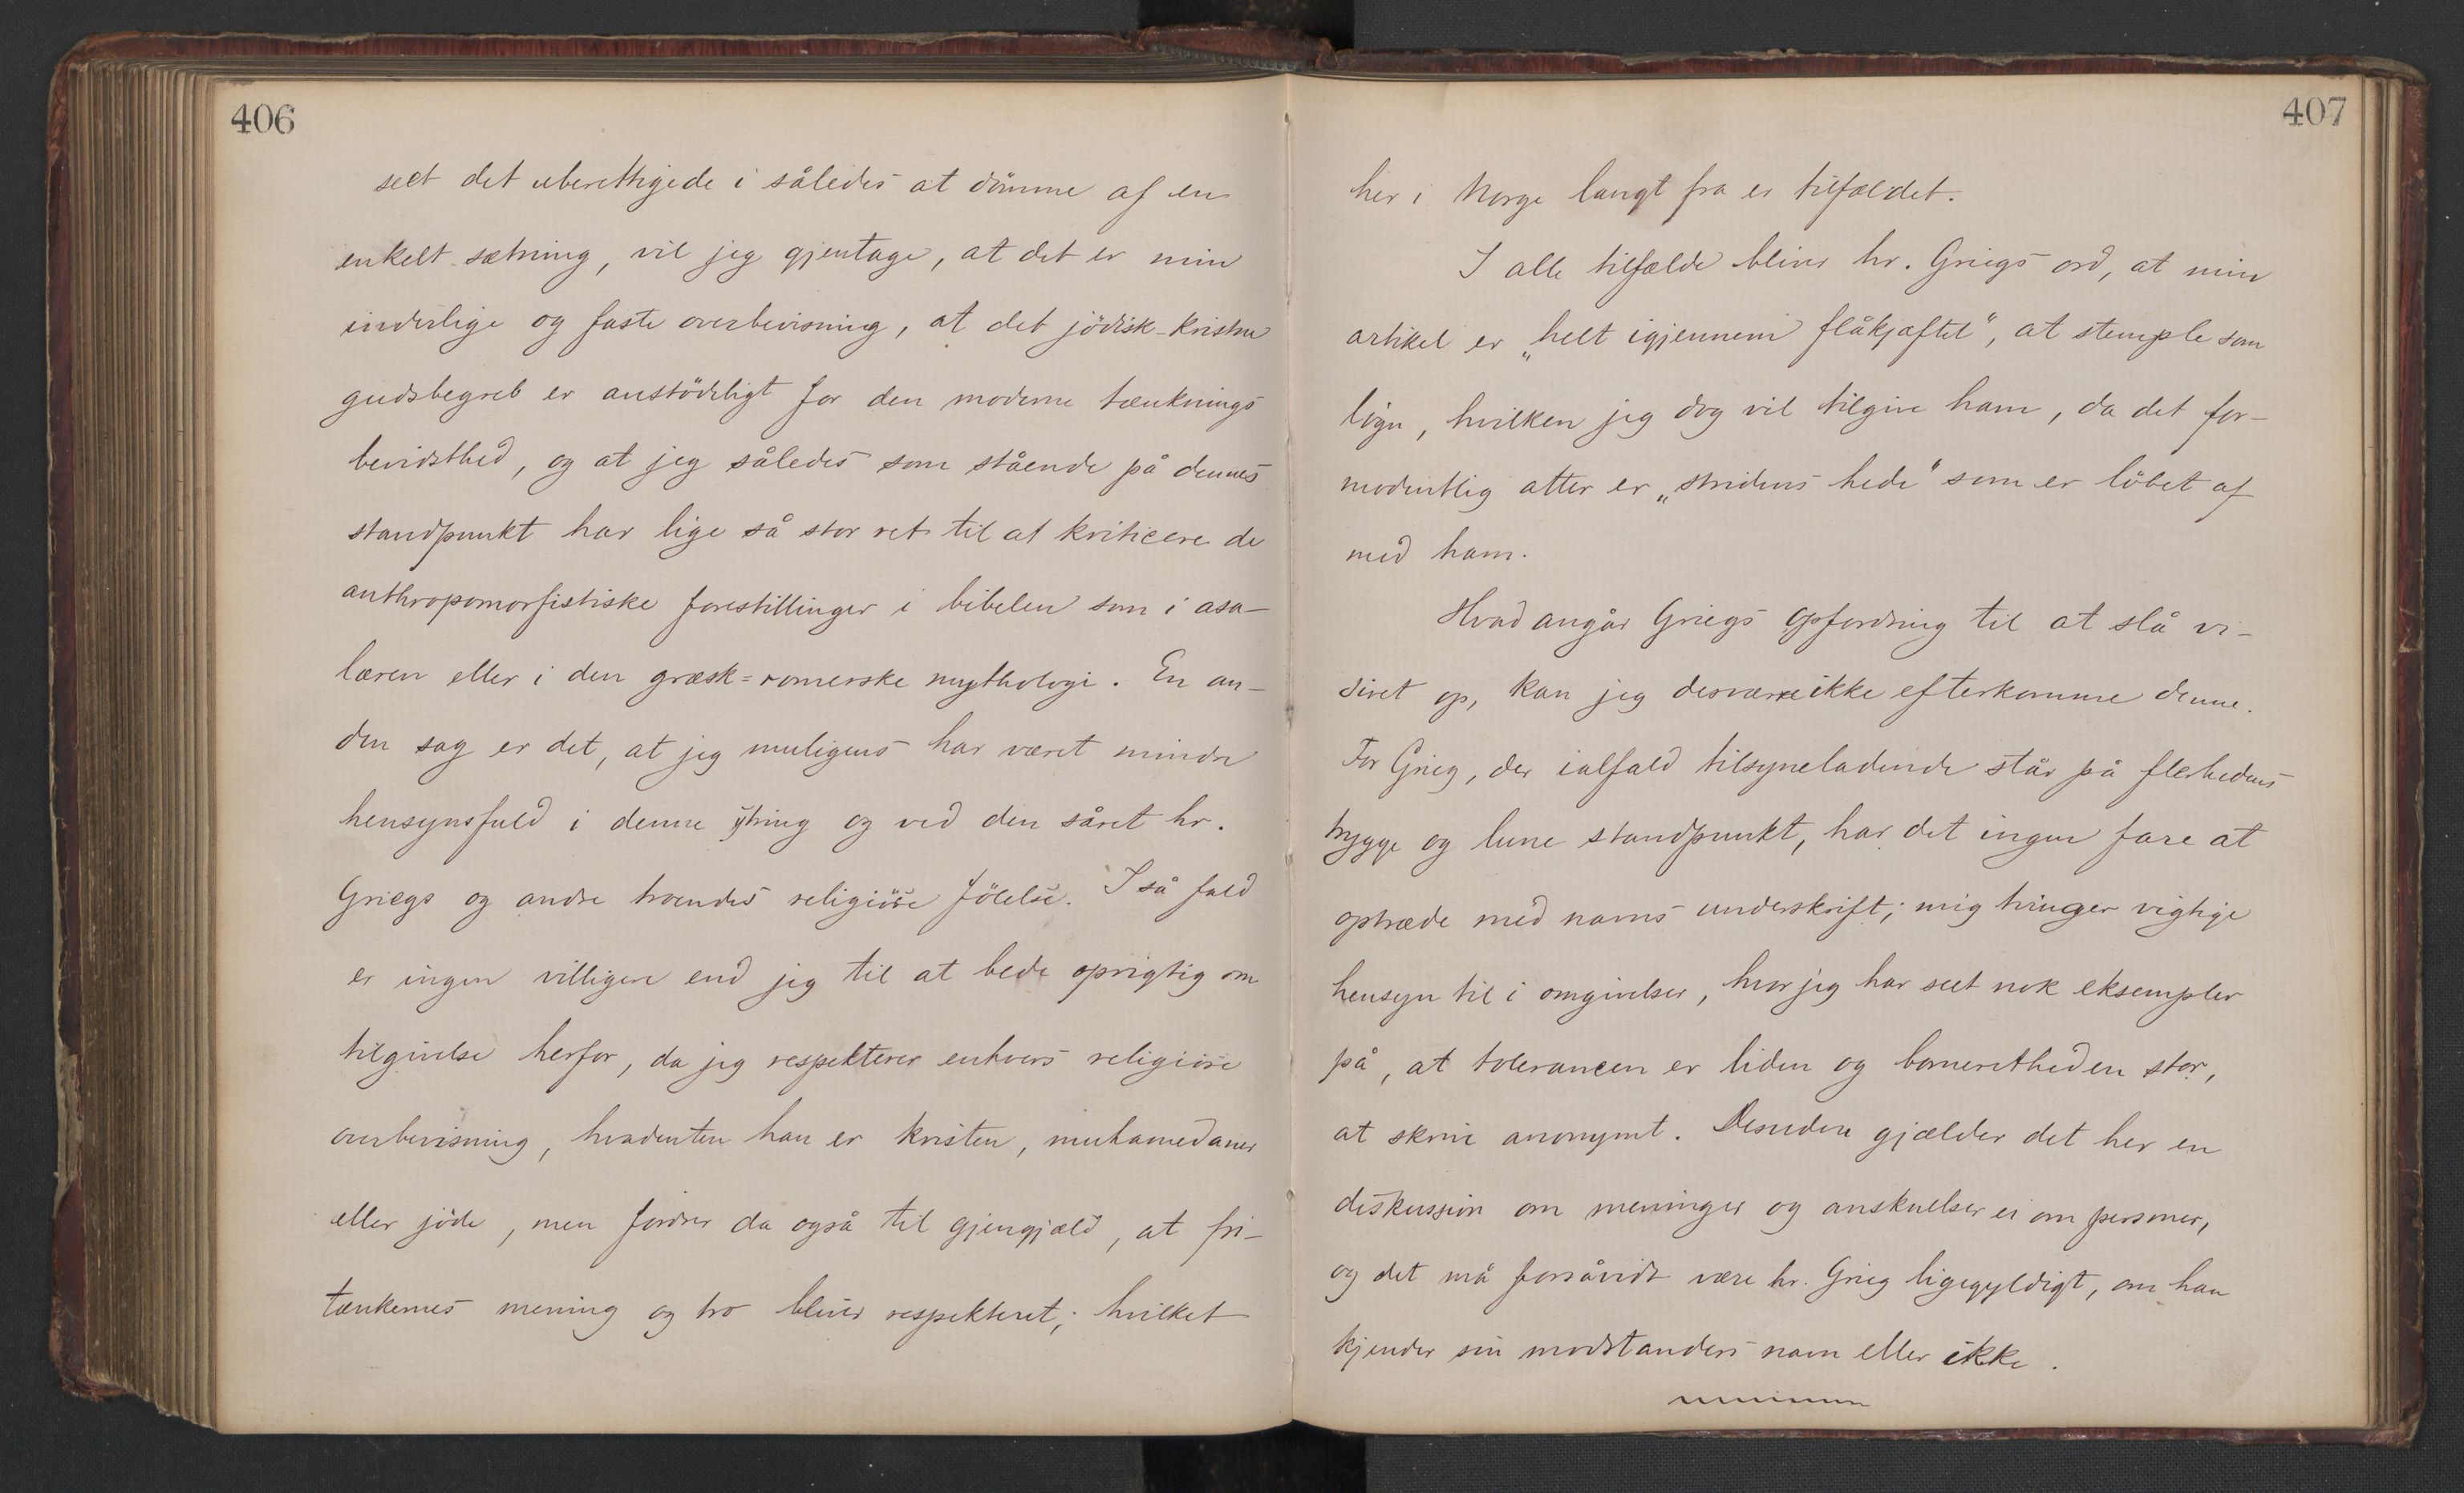 406
seet det uberettigede i således at dömme af en
enkelt sætning, vil jeg gjentage, at det er min
inderlige og faste overbevisning, at det jödisk-kristne
gudsbegreb er anstödeligt for den moderne tænknings
bevidsthed, og at jeg således som stående på dennes
standpunkt har lige så stor ret til at kriticere de
anthropomorfistiske forestillinger i bibelen som i asa-
læren eller i den græsk=romerske mythologi. En an-
den sag er det, at jeg muligens har været mindre
hensynsfuld i denne ytring og ved den såret hr.
Griegs og andre troendes religiöse fölelse. I så fald
er ingen villigere end jeg til at bede oprigtig om
tilgivelse herfor, da jeg respekterer enhvers religiöse
overbevisning, hvadenten han er kristen, muhamedaner
eller jöde, men fordrer da også til gjengjæld, at fri-
tænkernes mening og tro bliver respekteret; hvilket
407
her i Norge langt fra er tilfældet.
I alle tilfælde bliver hr. Griegs ord, at min
artikel er „helt igjennem flåkjæftet", at stemple som
lögn, hvilken jeg dog vil tilgive ham, da det for-
modentlig atter er „stridens hede" som er löbet af
med ham.
Hvad angår Griegs opfordring til at slå vi-
siret op, kan jeg desværre ikke efterkomme denne.
For Grieg, der ialfald tilsyneladende står på flerhedens
trygge og lune standpunkt, har det ingen fare at
optræde med navns underskrift; mig tvinger vigtige
hensyn til i omgivelser, hvor jeg har seet nok eksempler
på, at tolerancen er liden og borneretheden stor,
at skrive anonymt. Desuden gjælder det her en
diskussion om meninger og anskuelser ei om personer,
og det må forsåvidt være hr. Grieg ligegyldigt, om han
kjender sin modstanders navn eller ikke.